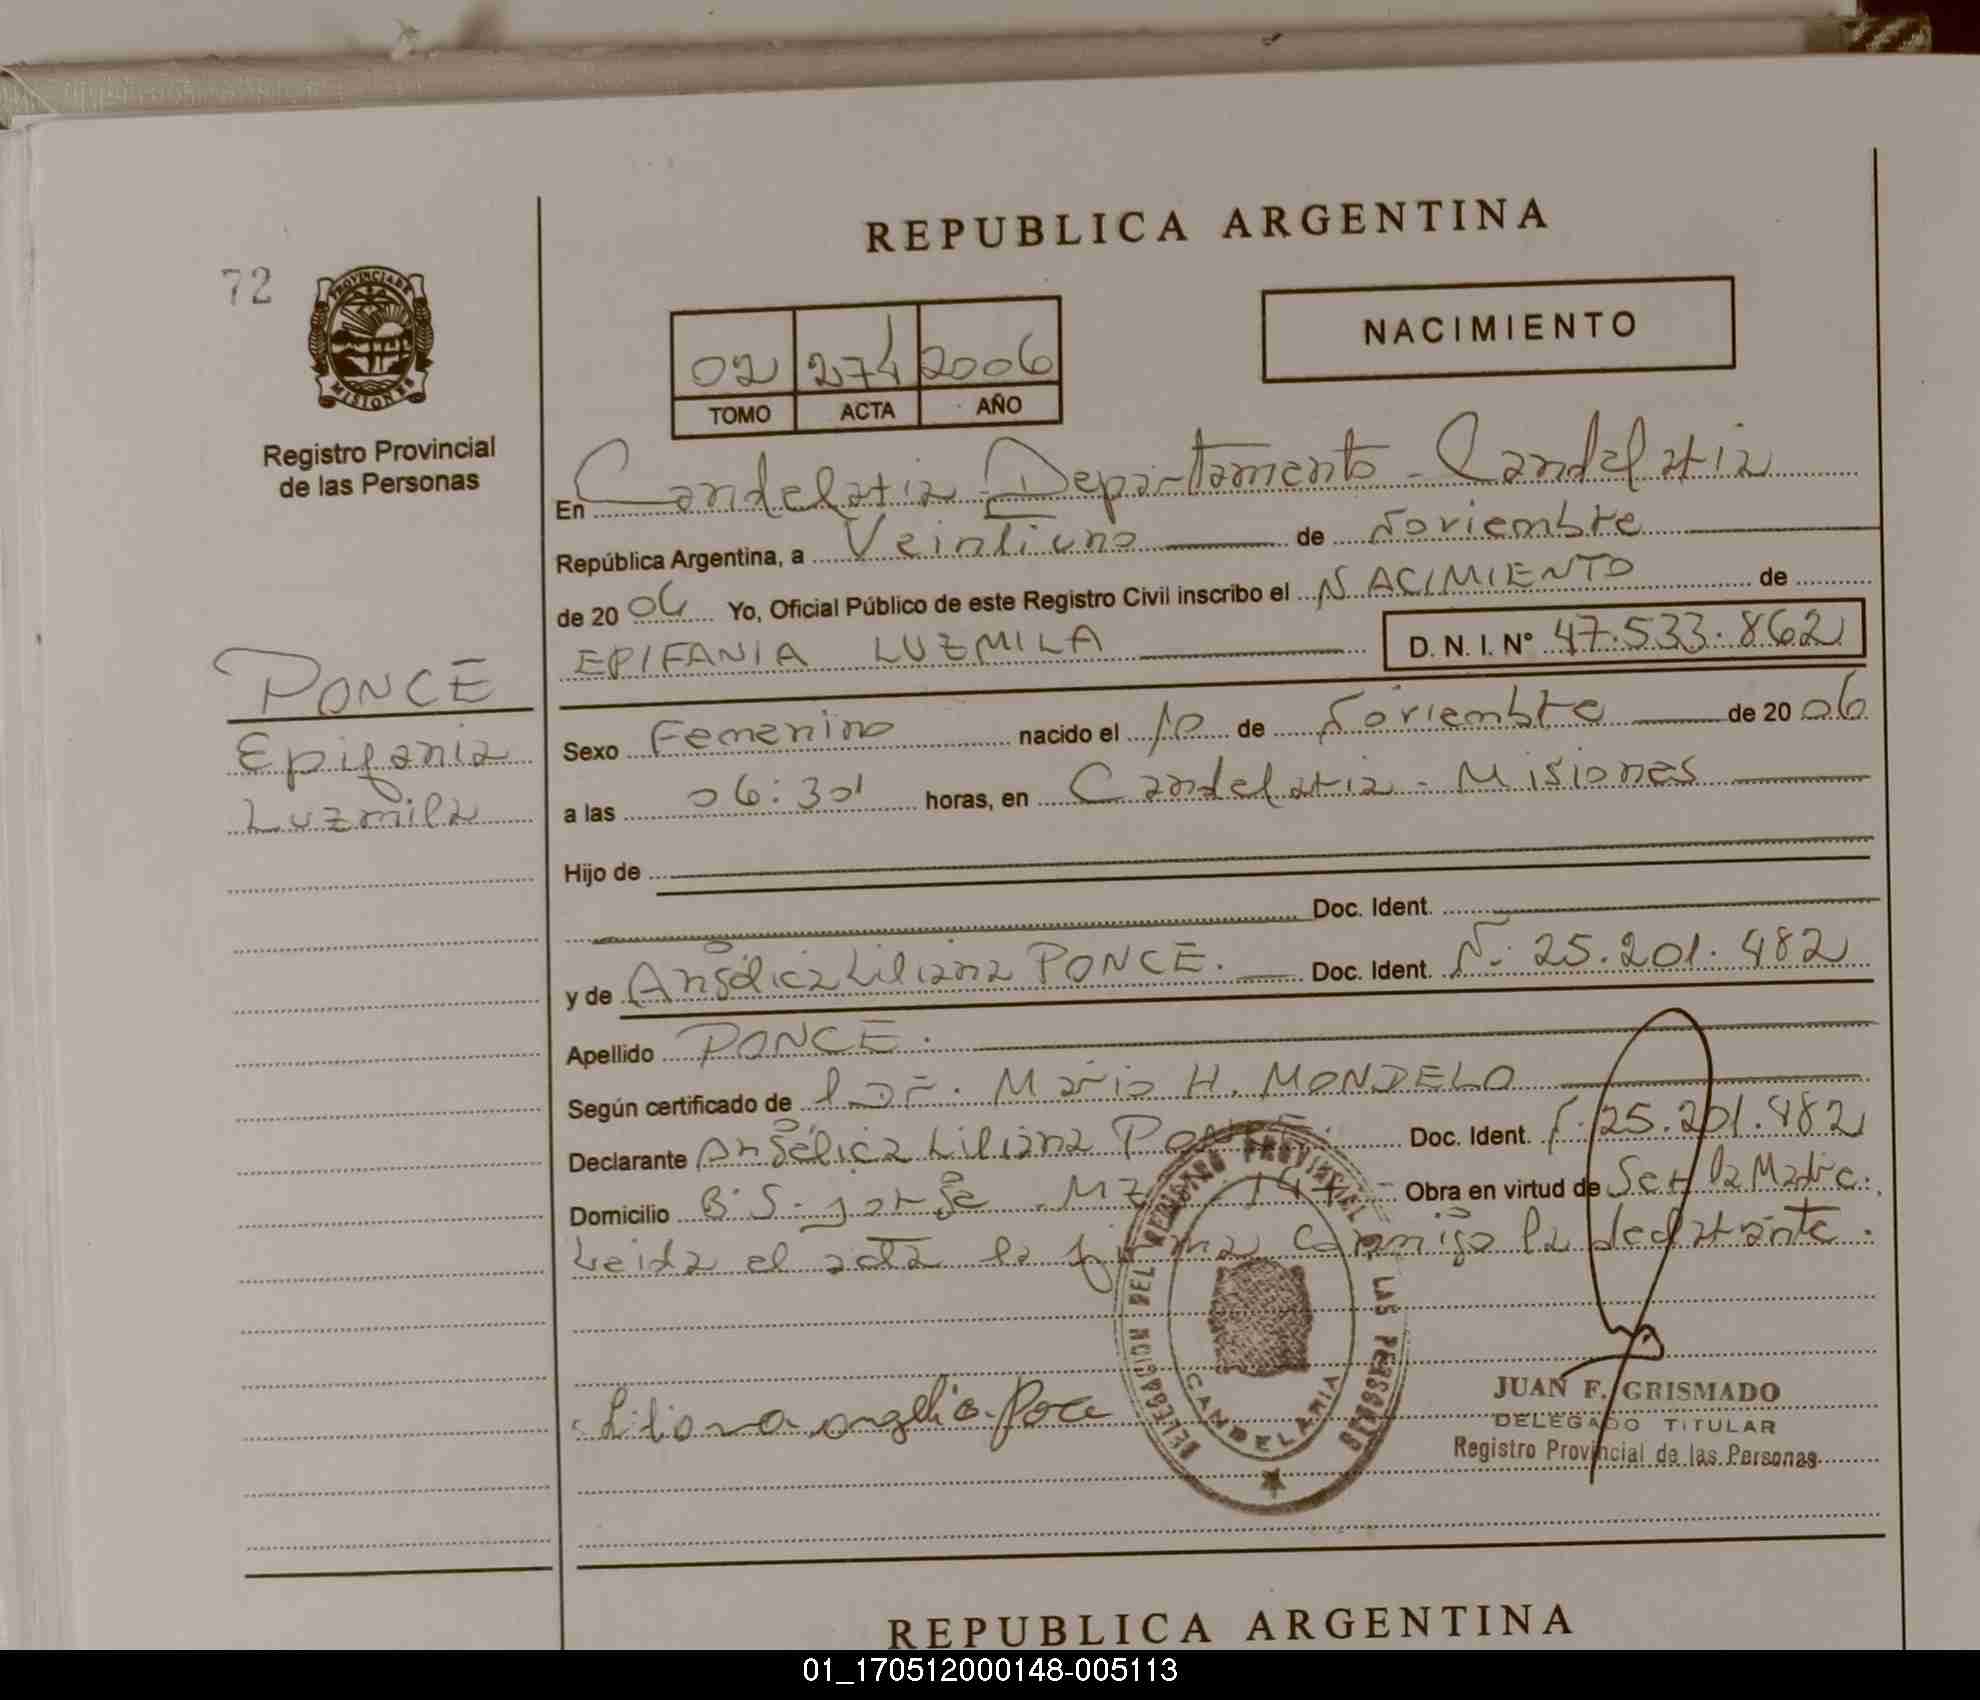 REPUBLICA ARGENTINA
72
PROVINCIA DE MISIONES
NACIMIENTO
02 274 2006
TOMO ACTA AÑO
Registro Provincial
de las Personas
En Candelaria - Departamento - Candelaria
República Argentina, a Veintiuno de Noviembre
de 2006 Yo, Oficial Público de este Registro Civil inscribo el NACIMIENTO de
EPIFANIA LUZMILA D. N. I. N° 47.533.862
PONCE
Epifania
Luzmila
Sexo Femenino nacido el 10 de Noviembre de 2006
a las 06:30 horas, en Candelaria - Misiones
Hijo de
Doc. Ident.
y de Angélica Liliana PONCE. Doc. Ident. N. 25.201.482
Apellido PONCE.
Según certificado de Dr. Mario H. MONDELO
Declarante Angélica Liliana PONCE. Doc. Ident. 25.201.482
Domicilio B: S. Jorge - MZ 147 - Obra en virtud de Ser la Madre.
Leida el acta la firma conmigo la declarante.
DELEGACION DEL REGISTRO PROVINCIAL DE LAS PERSONAS
CANDELARIA
Liliana
JUAN F. GRISMADO
DELEGADO TITULAR
Registro Provincial de las Personas
REPUBLICA ARGENTINA
01_170512000148-005113